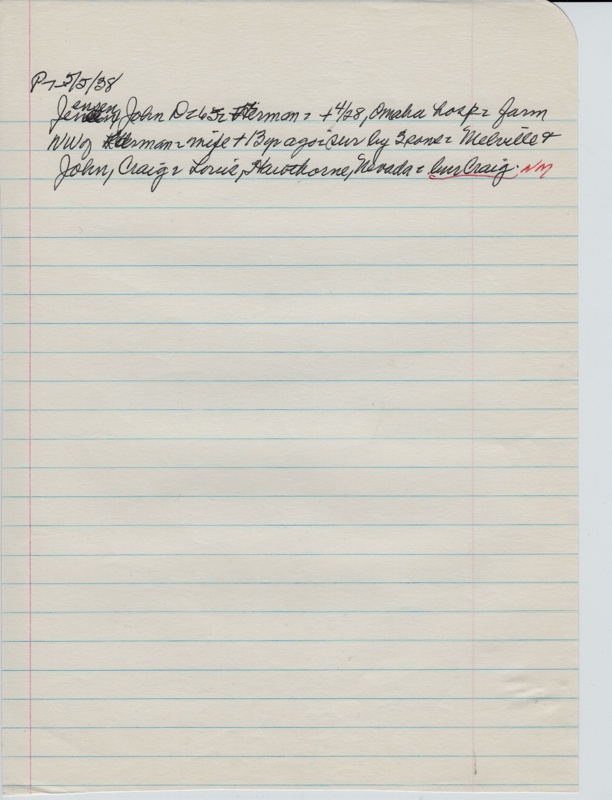 P-7-5/5/38
Jensen, John D = 65 = Herman = + 4/28, Omaha hosp = farm
NW of Herman = wife + 13 yr ago = sur by 3 sons = Melville &
John, Craig = Louie, Hawthorne, Nevada = bur Craig. NM